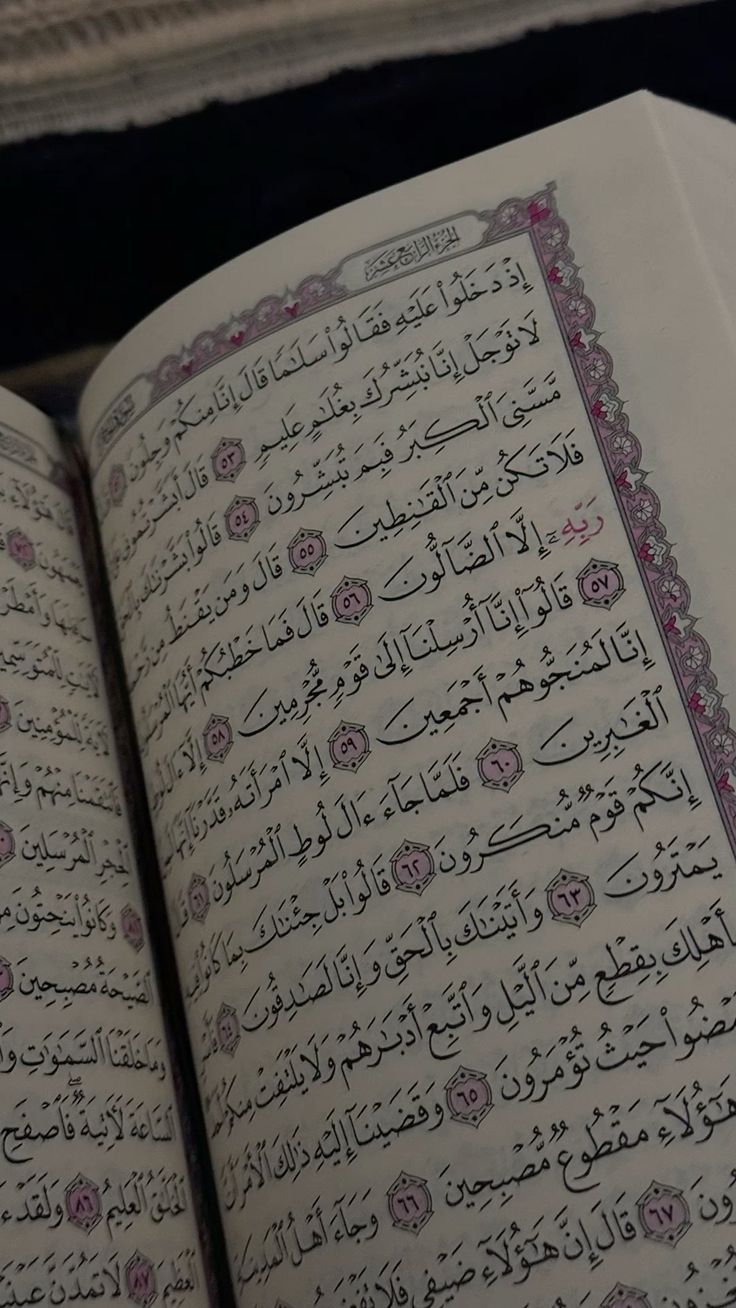 الجزء الرابع عشر
إِذْ دَخَلُوا۟ عَلَيْهِ فَقَالُوا۟ سَلَٰمًا قَالَ إِنَّا مِنكُمْ وَجِلُونَ
لَا تَوْجَلْ إِنَّا نُبَشِّرُكَ بِغُلَٰمٍ عَلِيمٍ ٥٣ قَالَ أَبَشَّرْتُمُونِى
مَّسَّنِىَ ٱلْكِبَرُ فَبِمَ تُبَشِّرُونَ ٥٤ قَالُوا۟ بَشَّرْنَٰكَ بِٱلْحَقِّ
فَلَا تَكُن مِّنَ ٱلْقَٰنِطِينَ ٥٥ قَالَ وَمَن يَقْنَطُ مِن
رَبِّهِۦٓ إِلَّا ٱلضَّآلُّونَ ٥٦ قَالَ فَمَا خَطْبُكُمْ أَيُّهَا ٱلْمُرْسَلُونَ
٥٧ قَالُوٓا۟ إِنَّآ أُرْسِلْنَآ إِلَىٰ قَوْمٍ مُّجْرِمِينَ ٥٨ إِلَّآ ءَالَ
إِنَّا لَمُنَجُّوهُمْ أَجْمَعِينَ ٥٩ إِلَّا ٱمْرَأَتَهُۥ قَدَّرْنَآ إِنَّهَا
ٱلْغَٰبِرِينَ ٦٠ فَلَمَّا جَآءَ ءَالَ لُوطٍ ٱلْمُرْسَلُونَ ٦١ قَالَ
إِنَّكُمْ قَوْمٌ مُّنكَرُونَ ٦٢ قَالُوا۟ بَلْ جِئْنَٰكَ بِمَا كَانُوا۟ فِيهِ
يَمْتَرُونَ ٦٣ وَأَتَيْنَٰكَ بِٱلْحَقِّ وَإِنَّا لَصَٰدِقُونَ ٦٤ فَأَسْرِ
بِأَهْلِكَ بِقِطْعٍ مِّنَ ٱلَّيْلِ وَٱتَّبِعْ أَدْبَٰرَهُمْ وَلَا يَلْتَفِتْ مِنكُمْ أَحَدٌ
وَٱمْضُوا۟ حَيْثُ تُؤْمَرُونَ ٦٥ وَقَضَيْنَآ إِلَيْهِ ذَٰلِكَ ٱلْأَمْرَ أَنَّ
هَٰٓؤُلَآءِ مَقْطُوعٌ مُّصْبِحِينَ ٦٦ وَجَآءَ أَهْلُ ٱلْمَدِينَةِ
٦٧ قَالَ إِنَّ هَٰٓؤُلَآءِ ضَيْفِى فَلَا
لِّلْمُتَوَسِّمِينَ
لِّلْمُؤْمِنِينَ
فَٱنتَقَمْنَا مِنْهُمْ
ٱلْحِجْرِ ٱلْمُرْسَلِينَ
وَكَانُوا۟ يَنْحِتُونَ
ٱلصَّيْحَةُ مُصْبِحِينَ
وَمَا خَلَقْنَا ٱلسَّمَٰوَٰتِ
ٱلسَّاعَةَ لَءَاتِيَةٌ فَٱصْفَحِ
ٱلْخَلَّٰقُ ٱلْعَلِيمُ ٨٦ وَلَقَدْ
ٱلْعَظِيمَ ٨٧ لَا تَمُدَّنَّ عَيْنَيْكَ